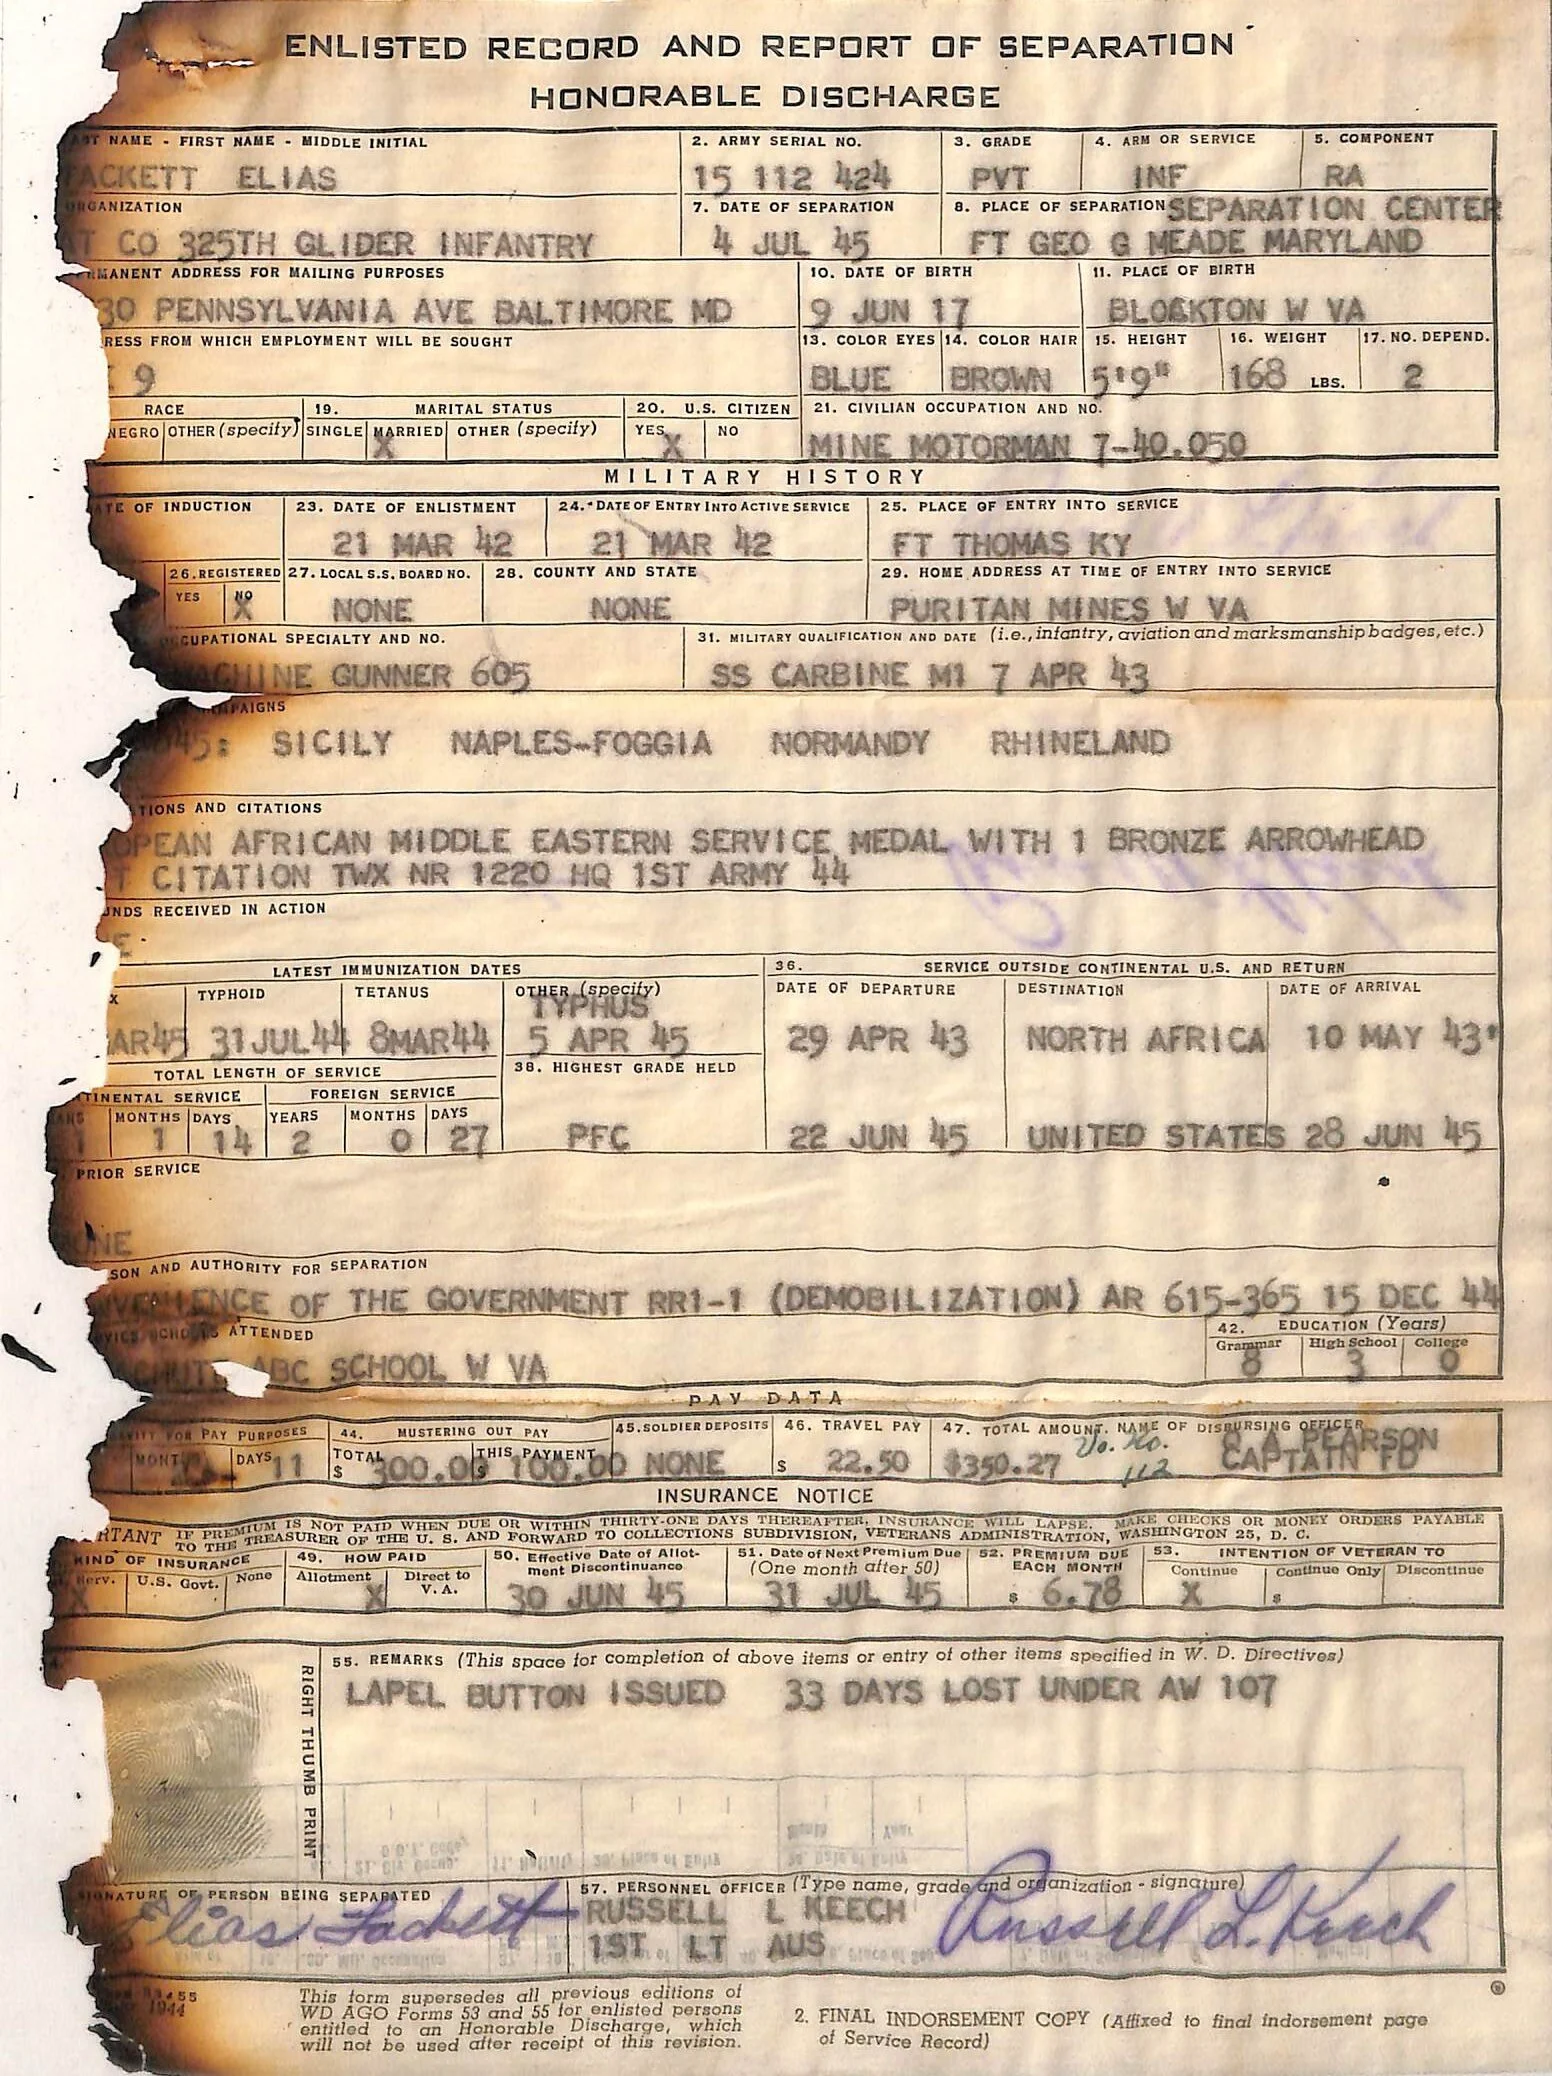 ENLISTED RECORD AND REPORT OF SEPARATION
HONORABLE DISCHARGE
NAME - FIRST NAME - MIDDLE INITIAL
2. ARMY SERIAL NO.
3. GRADE
4. ARM OR SERVICE
5. COMPONENT
ACKETT ELIAS
15 112 424
PVT
INF
RA
ORGANIZATION
7. DATE OF SEPARATION
8. PLACE OF SEPARATION SEPARATION CENTER
AT CO 325TH GLIDER INFANTRY
4 JUL 45
FT GEO G MEADE MARYLAND
RMANENT ADDRESS FOR MAILING PURPOSES
10. DATE OF BIRTH
11. PLACE OF BIRTH
30 PENNSYLVANIA AVE BALTIMORE MD
9 JUN 17
W VA
RESS FROM WHICH EMPLOYMENT WILL BE SOUGHT
13. COLOR EYES
14. COLOR HAIR
15. HEIGHT
16. WEIGHT
17. NO. DEPEND.
9
BLUE
BROWN
5'9"
168 LBS.
2
RACE
19. MARITAL STATUS
20. U.S. CITIZEN
21. CIVILIAN OCCUPATION AND NO.
NEGRO
OTHER (specify)
SINGLE
MARRIED
OTHER (specify)
YES
NO
X
X
MINE MOTORMAN 7-40.050
MILITARY HISTORY
TE OF INDUCTION
23. DATE OF ENLISTMENT
24. DATE OF ENTRY INTO ACTIVE SERVICE
25. PLACE OF ENTRY INTO SERVICE
21 MAR 42
21 MAR 42
FT THOMAS KY
26. REGISTERED
27. LOCAL S.S. BOARD NO.
28. COUNTY AND STATE
29. HOME ADDRESS AT TIME OF ENTRY INTO SERVICE
YES
NO
X
NONE
NONE
PURITAN MINES W VA
CUPATIONAL SPECIALTY AND NO.
31. MILITARY QUALIFICATION AND DATE (i.e., infantry, aviation and marksmanship badges, etc.)
ACHINE GUNNER 605
SS CARBINE M1 7 APR 43
MPAIGNS
45: SICILY NAPLES-FOGGIA NORMANDY RHINELAND
TIONS AND CITATIONS
OPEAN AFRICAN MIDDLE EASTERN SERVICE MEDAL WITH 1 BRONZE ARROWHEAD
T CITATION TWX NR 1220 HQ 1ST ARMY 44
NDS RECEIVED IN ACTION
E
LATEST IMMUNIZATION DATES
36. SERVICE OUTSIDE CONTINENTAL U.S. AND RETURN
X
TYPHOID
TETANUS
OTHER (specify)
DATE OF DEPARTURE
DESTINATION
DATE OF ARRIVAL
TYPHUS
AR45
31JUL44
8MAR44
5 APR 45
29 APR 43
NORTH AFRICA
10 MAY 43
TOTAL LENGTH OF SERVICE
38. HIGHEST GRADE HELD
TINENTAL SERVICE
FOREIGN SERVICE
MONTHS
DAYS
YEARS
MONTHS
DAYS
1
1
14
2
0
27
PFC
22 JUN 45
UNITED STATES
28 JUN 45
PRIOR SERVICE
ONE
SON AND AUTHORITY FOR SEPARATION
NVENIENCE OF THE GOVERNMENT RR1-1 (DEMOBILIZATION) AR 615-365 15 DEC 44
ATTENDED
42. EDUCATION (Years)
Grammar
High School
College
ABC SCHOOL W VA
8
3
0
PAY DATA
FOR PAY PURPOSES
44. MUSTERING OUT PAY
45. SOLDIER DEPOSITS
46. TRAVEL PAY
47. TOTAL AMOUNT, NAME OF DISBURSING OFFICER
DAYS 11
TOTAL
$ 300.00
THIS PAYMENT
$ 100.00
NONE
$ 22.50
$350.27
Vo. No.
112
A PEARSON
CAPTAIN FD
INSURANCE NOTICE
RTANT IF PREMIUM IS NOT PAID WHEN DUE OR WITHIN THIRTY-ONE DAYS THEREAFTER, INSURANCE WILL LAPSE. MAKE CHECKS OR MONEY ORDERS PAYABLE
TO THE TREASURER OF THE U. S. AND FORWARD TO COLLECTIONS SUBDIVISION, VETERANS ADMINISTRATION, WASHINGTON 25, D. C.
KIND OF INSURANCE
49. HOW PAID
50. Effective Date of Allotment Discontinuance
51. Date of Next Premium Due (One month after 50)
52. PREMIUM DUE EACH MONTH
53. INTENTION OF VETERAN TO
Serv.
U.S. Govt.
None
Allotment
Direct to V. A.
Continue
Continue Only
Discontinue
X
X
30 JUN 45
31 JUL 45
$ 6.78
X
$
RIGHT THUMB PRINT
55. REMARKS (This space for completion of above items or entry of other items specified in W. D. Directives)
LAPEL BUTTON ISSUED 33 DAYS LOST UNDER AW 107
SIGNATURE OF PERSON BEING SEPARATED
57. PERSONNEL OFFICER (Type name, grade and organization - signature)
Elias Fackett
RUSSELL L KEECH
1ST LT AUS
Russell L. Keech
55
1944
This form supersedes all previous editions of
WD AGO Forms 53 and 55 for enlisted persons
entitled to an Honorable Discharge, which
will not be used after receipt of this revision.
2. FINAL INDORSEMENT COPY (Affixed to final indorsement page
of Service Record)